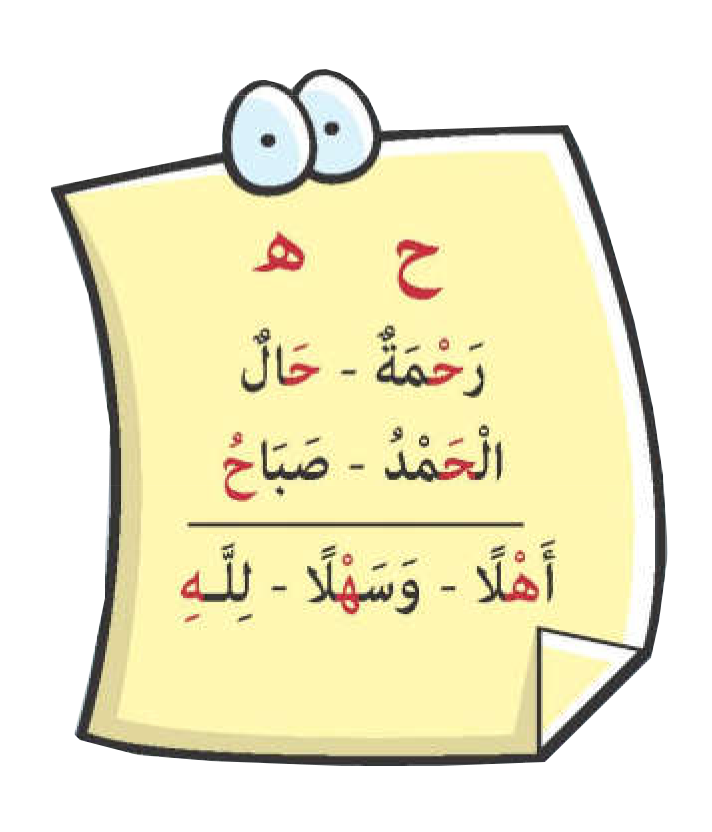 ح ه
رَحْمَةٌ - حَالٌ
الْحَمْدُ - صَبَاحُ
أَهْلًا - وَسَهْلًا - لِلَّـهِ